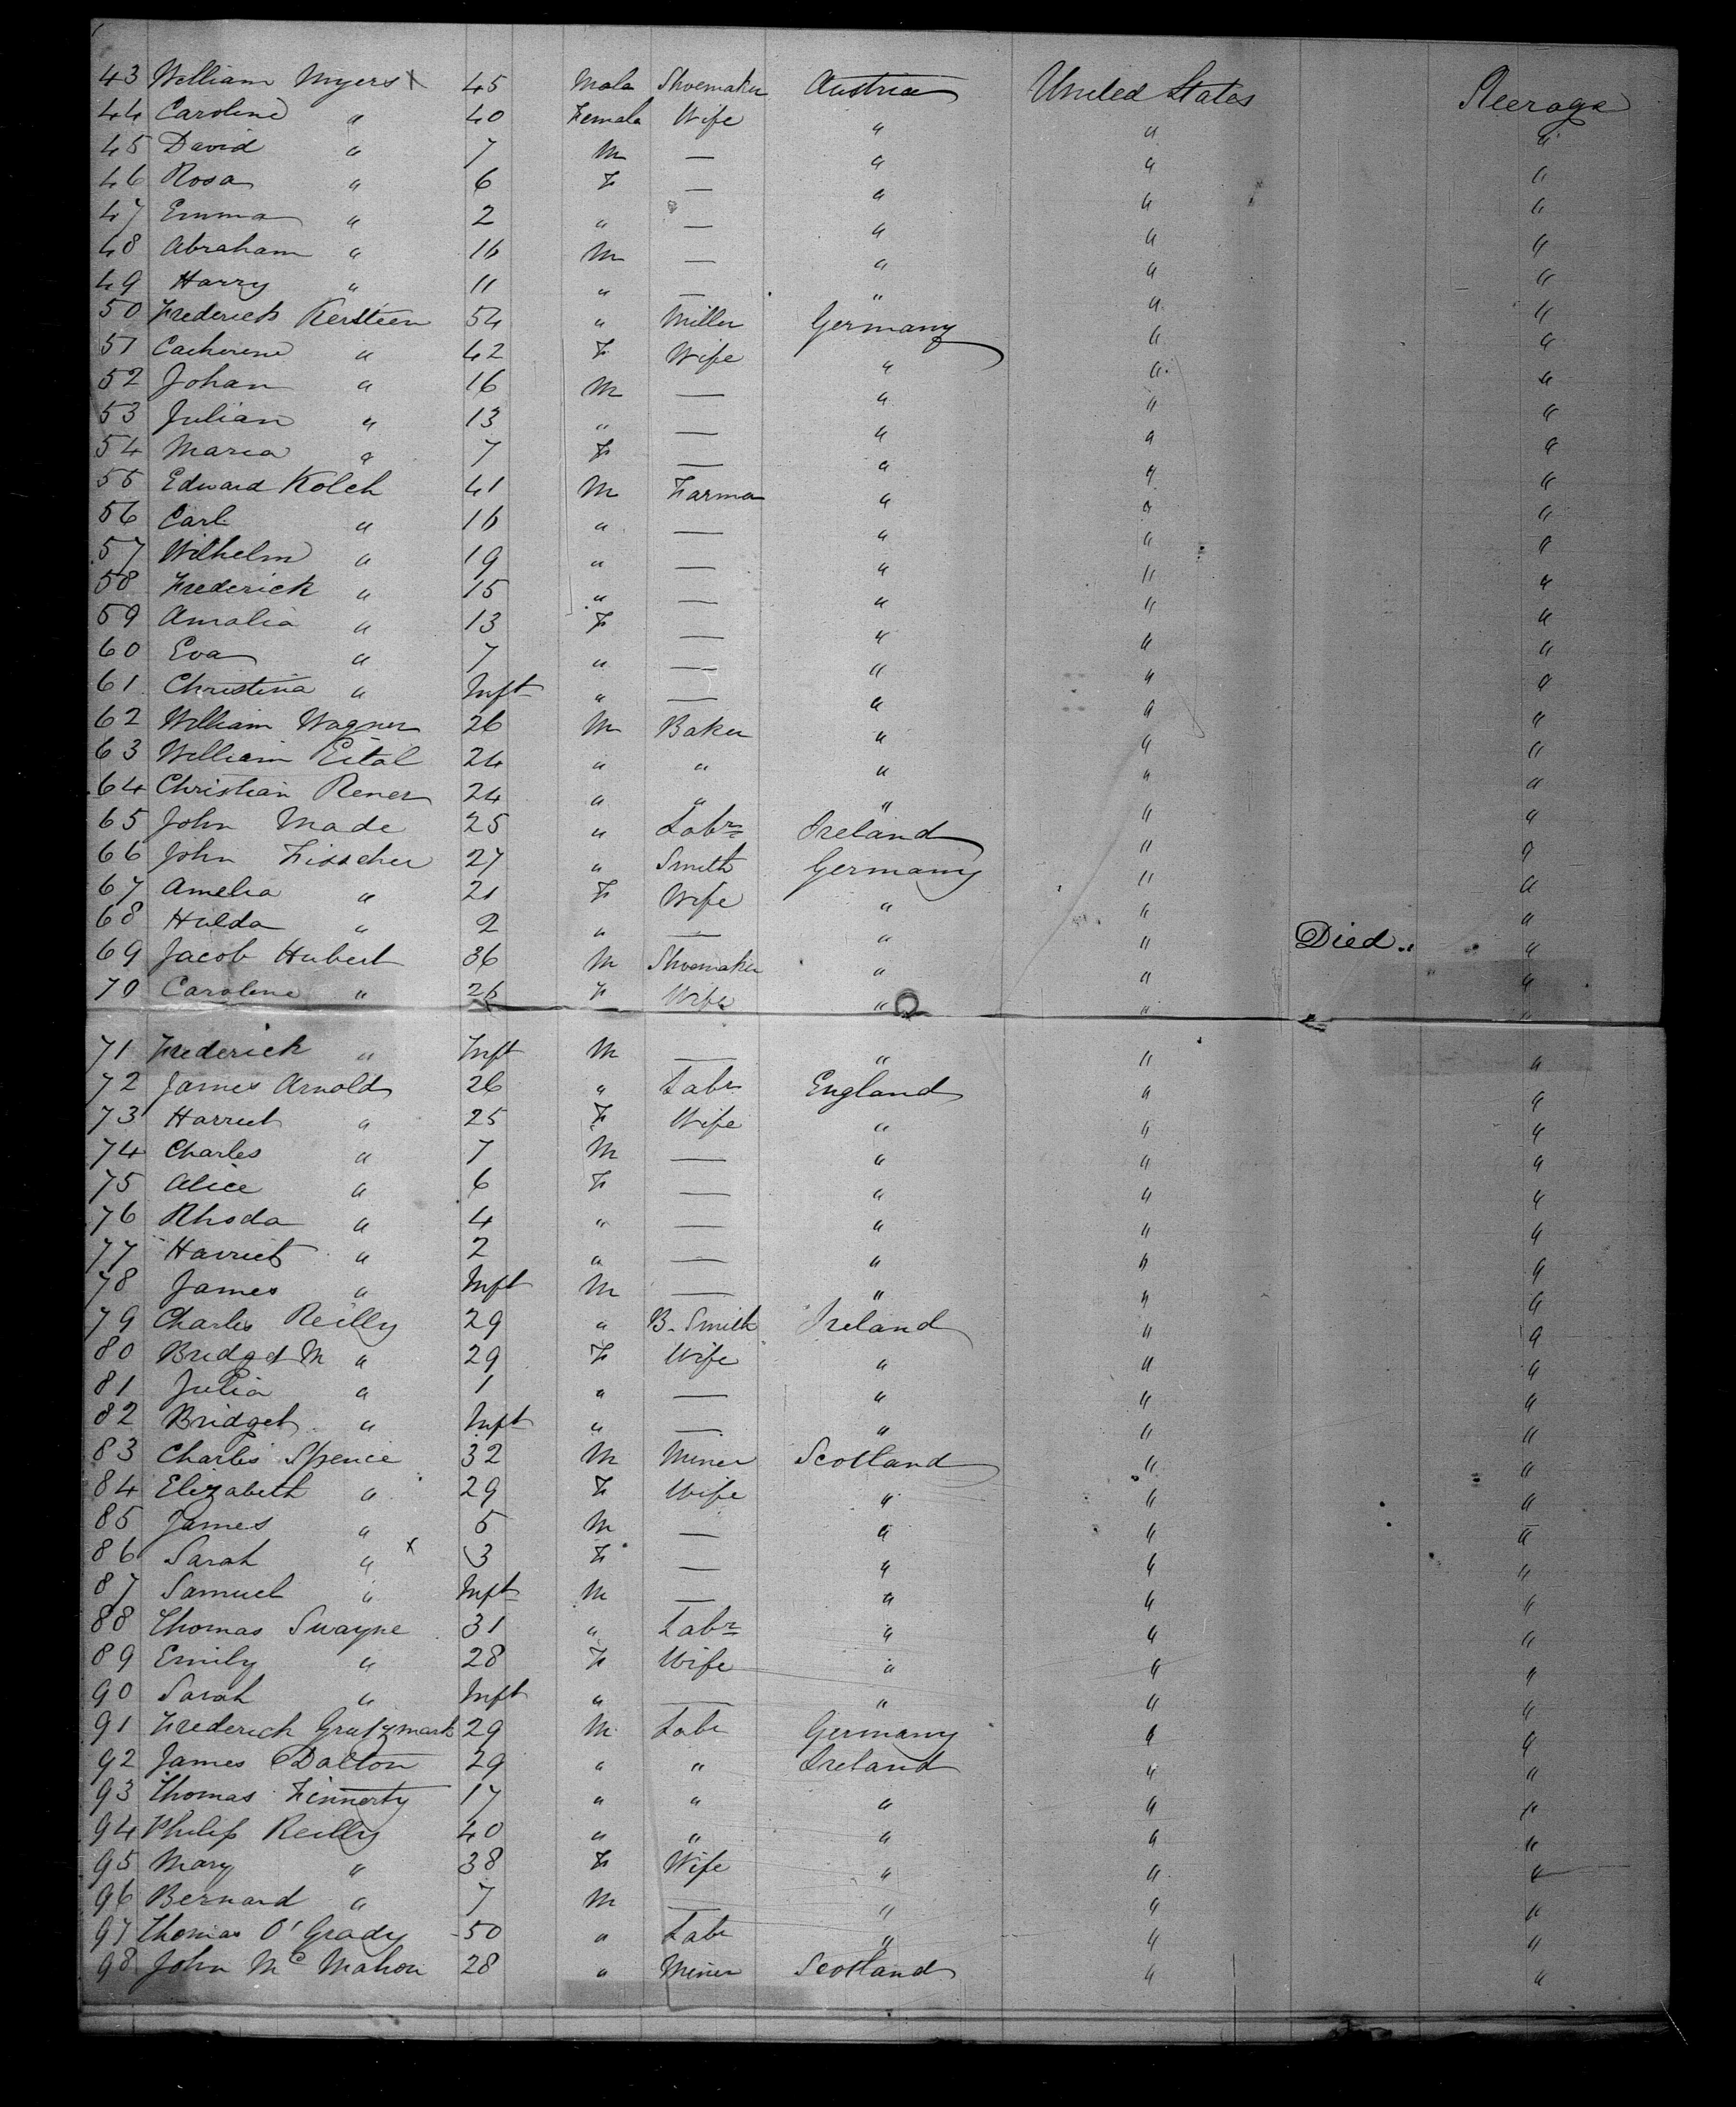 43 William Myers x 45 Male Shoemaker Austria United States Steerage
44 Caroline " 40 Female Wife " " "
45 David " 7 M — " " "
46 Rosa " 6 F — " " "
47 Emma " 2 " — " " "
48 Abraham " 16 M — " " "
49 Harry " 11 " — " " "
50 Frederick Kerstien 54 " Miller Germany " "
51 Catherine " 42 F Wife " " "
52 Johan " 16 M — " " "
53 Julian " 13 " — " " "
54 Maria " 7 F — " " "
55 Edward Kolch 41 M Farmer " " "
56 Carl " 16 " — " " "
57 Wilhelm " 19 " — " " "
58 Frederick " 15 " — " " "
59 Amalia " 13 F — " " "
60 Eva " 7 " — " " "
61 Christina " Inft " — " " "
62 William Wagner 26 M Baker " " "
63 William Eital 24 " " " " "
64 Christian Rener 24 " " " " "
65 John Made 25 " Labr Ireland " "
66 John Fisscher 27 " Smith Germany " "
67 Amelia " 21 F Wife " " "
68 Hulda " 2 " — " " Died. "
69 Jacob Hubert 36 M Shoemaker " " "
70 Caroline " 26 F Wife " " "
71 Frederick " Inft M — " " "
72 James Arnold 26 " Labr England " "
73 Harriet " 25 F Wife " " "
74 Charles " 7 M — " " "
75 Alice " 6 F — " " "
76 Rhoda " 4 " — " " "
77 Harriet " 2 " — " " "
78 James " Inft M — " " "
79 Charles Reilly 29 " B. Smith Ireland " "
80 Bridget M " 29 F Wife " " "
81 Julia " 1 " — " " "
82 Bridget " Inft " — " " "
83 Charles Spence 32 M Miner Scotland " "
84 Elizabeth " 29 F Wife " " "
85 James " 5 M — " " "
86 Sarah " x 3 F — " " "
87 Samuel " Inft M — " " "
88 Thomas Swayne 31 " Labr " " "
89 Emily " 28 F Wife " " "
90 Sarah " Inft " — " " "
91 Frederich Grutzmark 29 M Labr Germany " "
92 James Dalton 29 " " Ireland " "
93 Thomas Finnerty 17 " " " " "
94 Philip Reilly 40 " " " " "
95 Mary " 38 F Wife " " "
96 Bernard " 7 M — " " "
97 Thomas O'Grady 50 " Labr " " "
98 John McMahon 28 " Miner Scotland " "